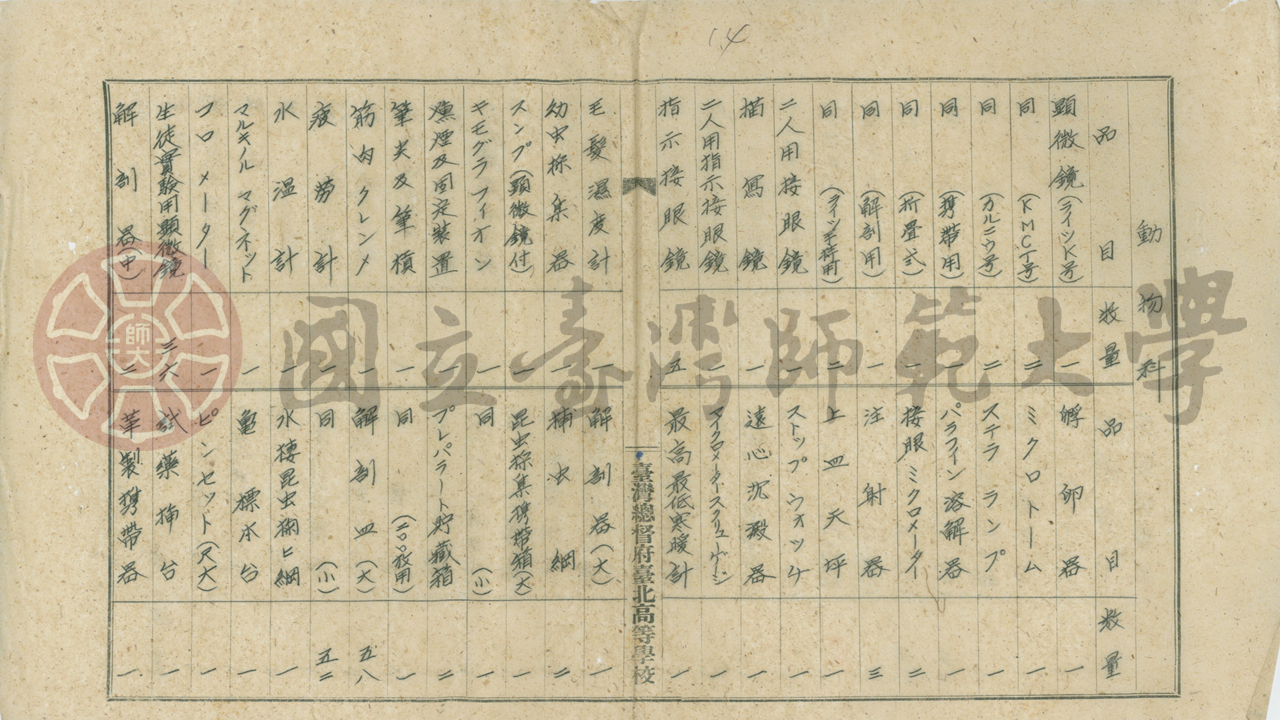 14
動物科
品目 数量
顕微鏡(ライツK号) 一
同(KMC丁号) 二
同(カルニウ号) 二
同(携帯用) 一
同(折畳式) 一
同(解剖用) 一
同 二
二人用接眼鏡 一
描写鏡 一
二人用指示接眼鏡 一
指示接眼鏡 五
品目 数量
孵卵器 一
ミクロトーム 一
ステラランプ 一
パラフイン溶解器 一
接眼ミクロメーター 二
注射器 三
上皿天坪 一
ストップウォッチ 一
遠心沉澱器 一
マイクロメータースクリューゲージ 一
最高最低寒暖計 一
臺灣總督府臺北高等學校
毛髪濕度計 一
幼虫採集器 一
スンプ(顕微鏡付) 一
キモグラフィオン 一
燻煙及固定装置 一
筆尖及筆槓 一
筋肉クレンメ 一
疲労計 一
水温計 一
マルキノルマグネット 一
フロメーター 一
生徒実験用顕微鏡 三六
解剖器(中) 二
解剖器(大) 一
捕虫網 二
昆虫採集携帯箱(大) 一
同(小) 一
プレパラート貯蔵箱 二
同(二〇〇枚用) 一
解剖皿(大) 五八
同(小) 五二
水棲昆虫掬ヒ網 一
亀標本台 一
ピンセット(尺大) 一
試薬挿台 一
革製携帯器 一
師大
國立臺灣師範大學